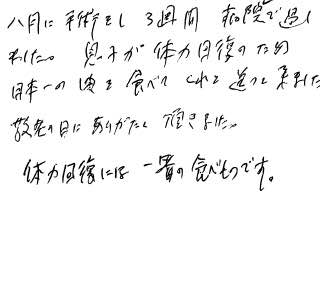 八月に手術をし3週間 病院で過し
ました。息子が体力回復のため
日本一の肉を食べてくれと送って来ました
敬老の日にありがたく頂きました。
体力回復には一番の食べものです。